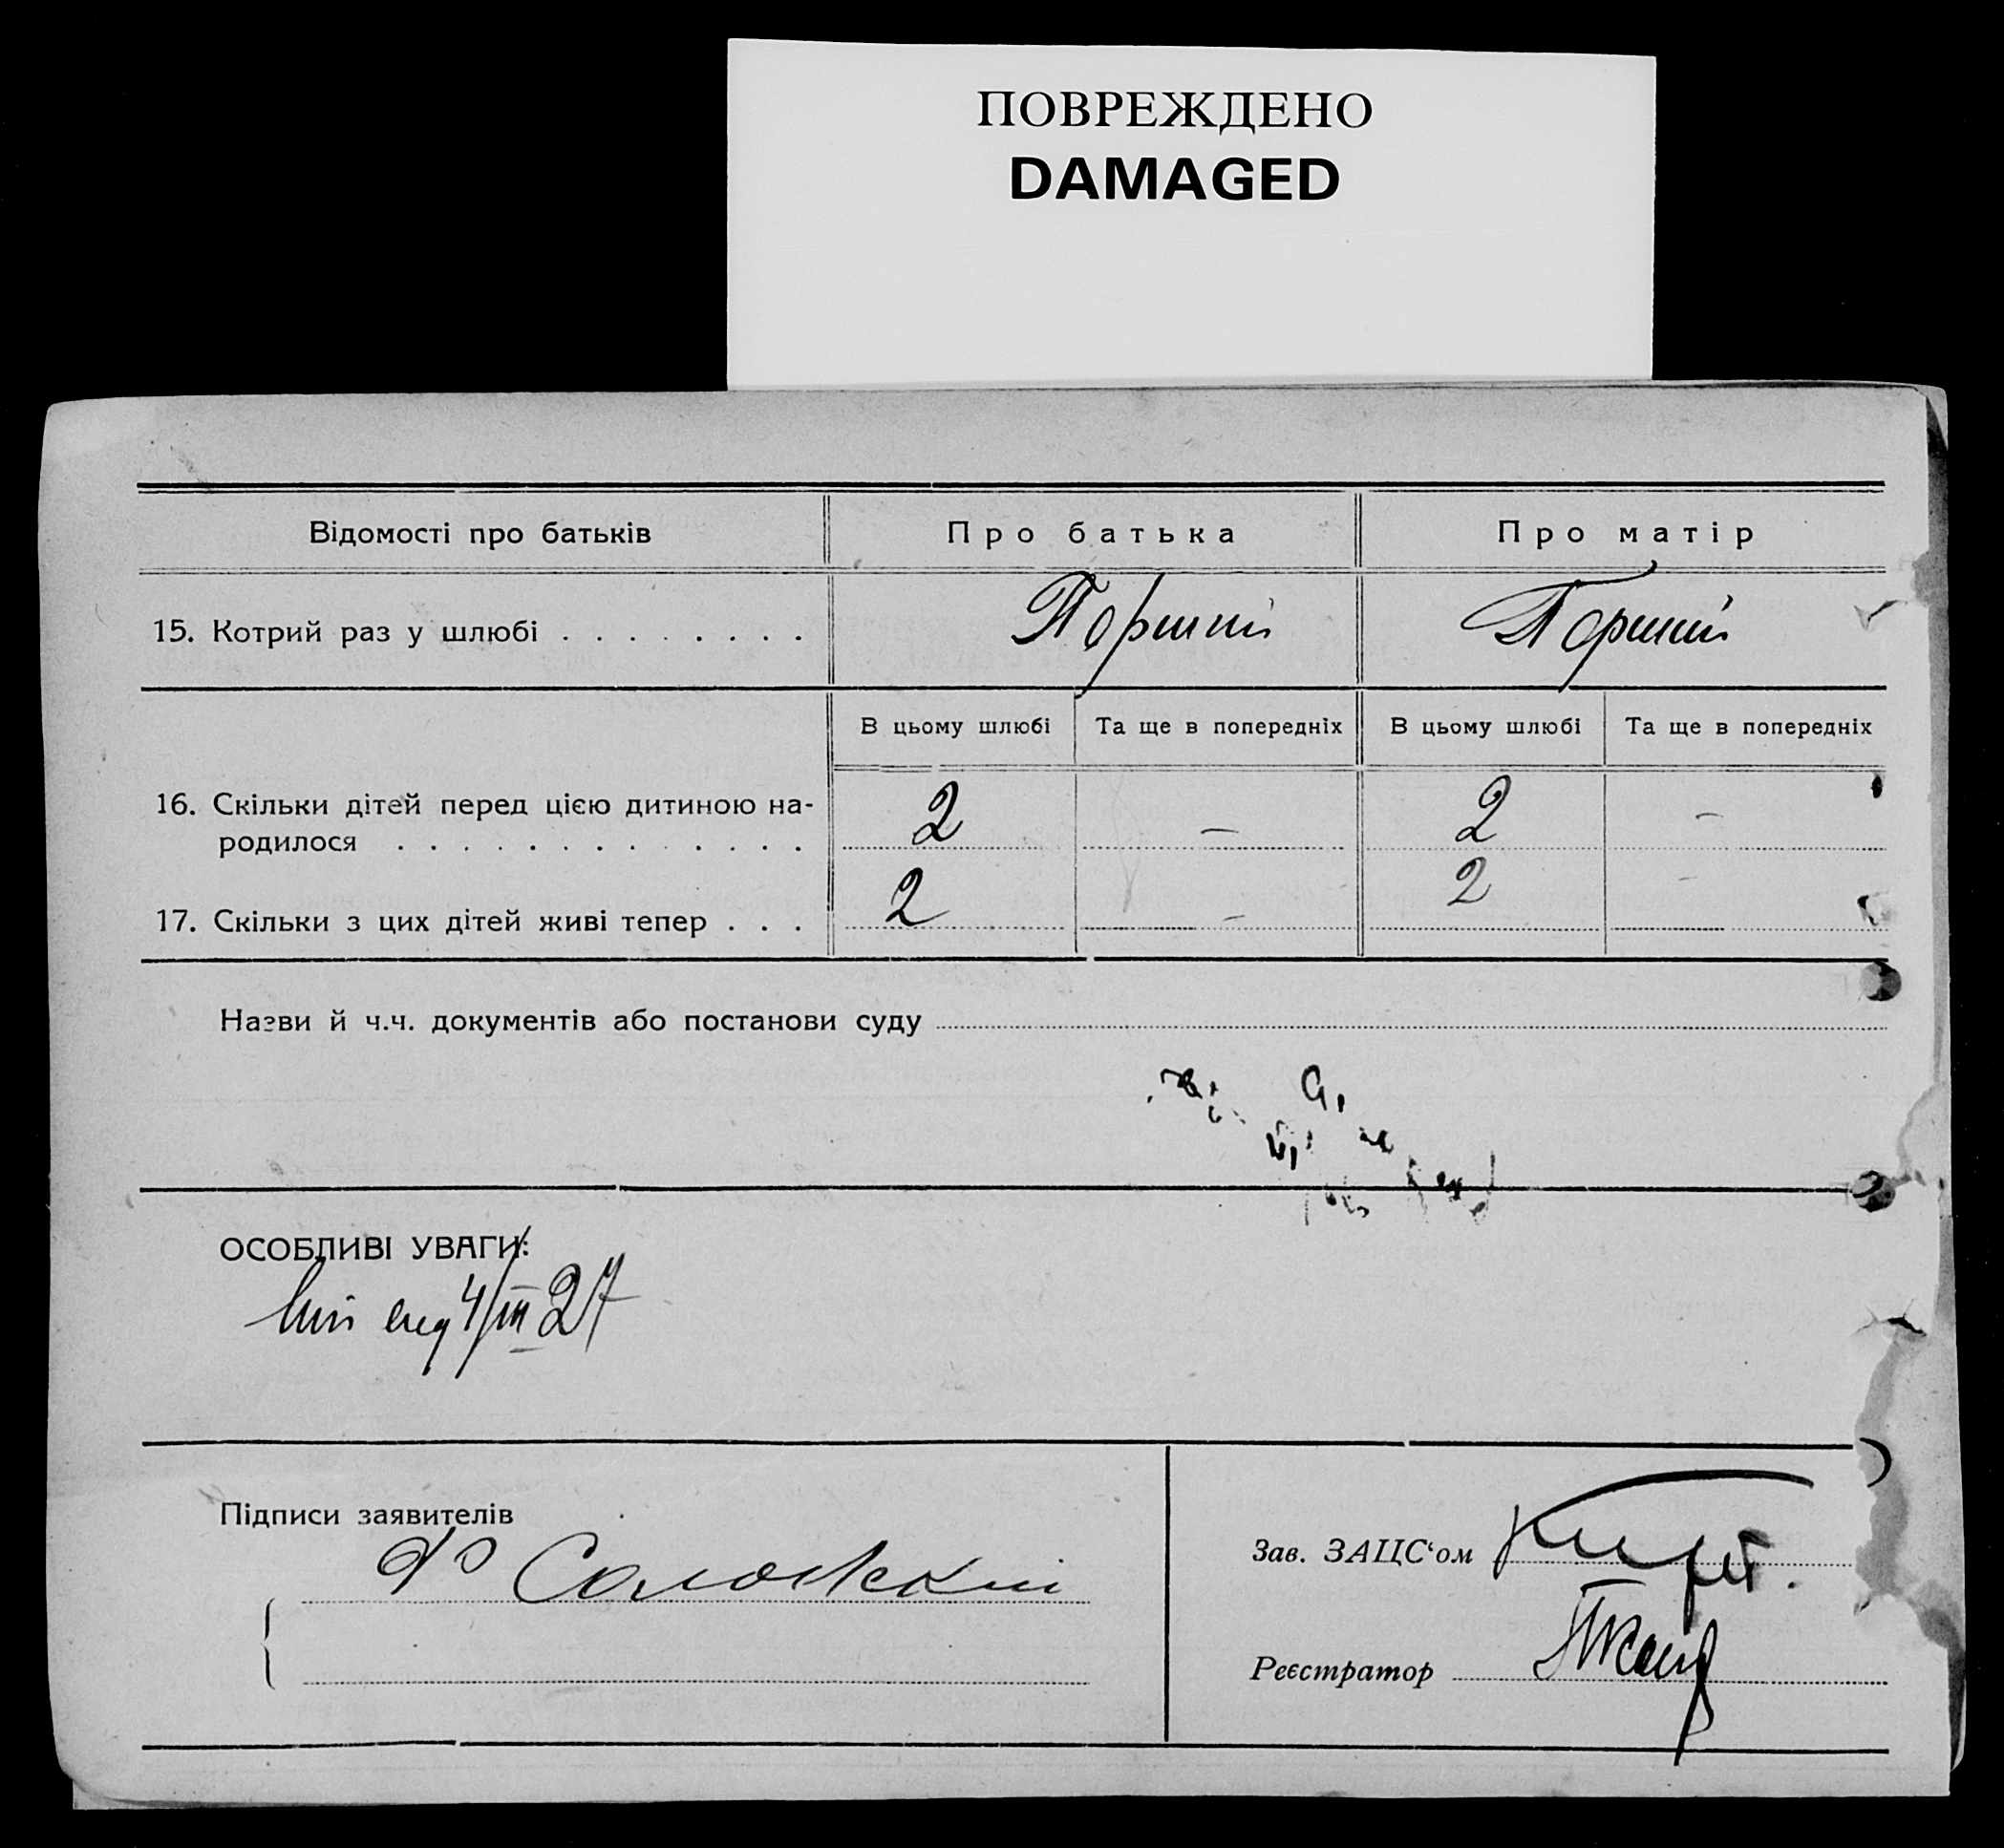 ПОВРЕЖДЕНО
DAMAGED
Відомості про батьків
Про батька
Про матір
15. Котрий раз у шлюбі . . . . . . . .
В цьому шлюбі
Та ще в попередніх
В цьому шлюбі
Та ще в попередніх
16. Скільки дітей перед цією дитиною на-
родилося . . . . . . . . . . . . . .
2
–
2
–
17. Скільки з цих дітей живі тепер . . .
2
–
2
–
Назви й ч.ч. документів або постанови суду
ОСОБЛИВІ УВАГИ:
4/III 27
Підписи заявителів
Зав. ЗАЦС‘ом
Реєстратор